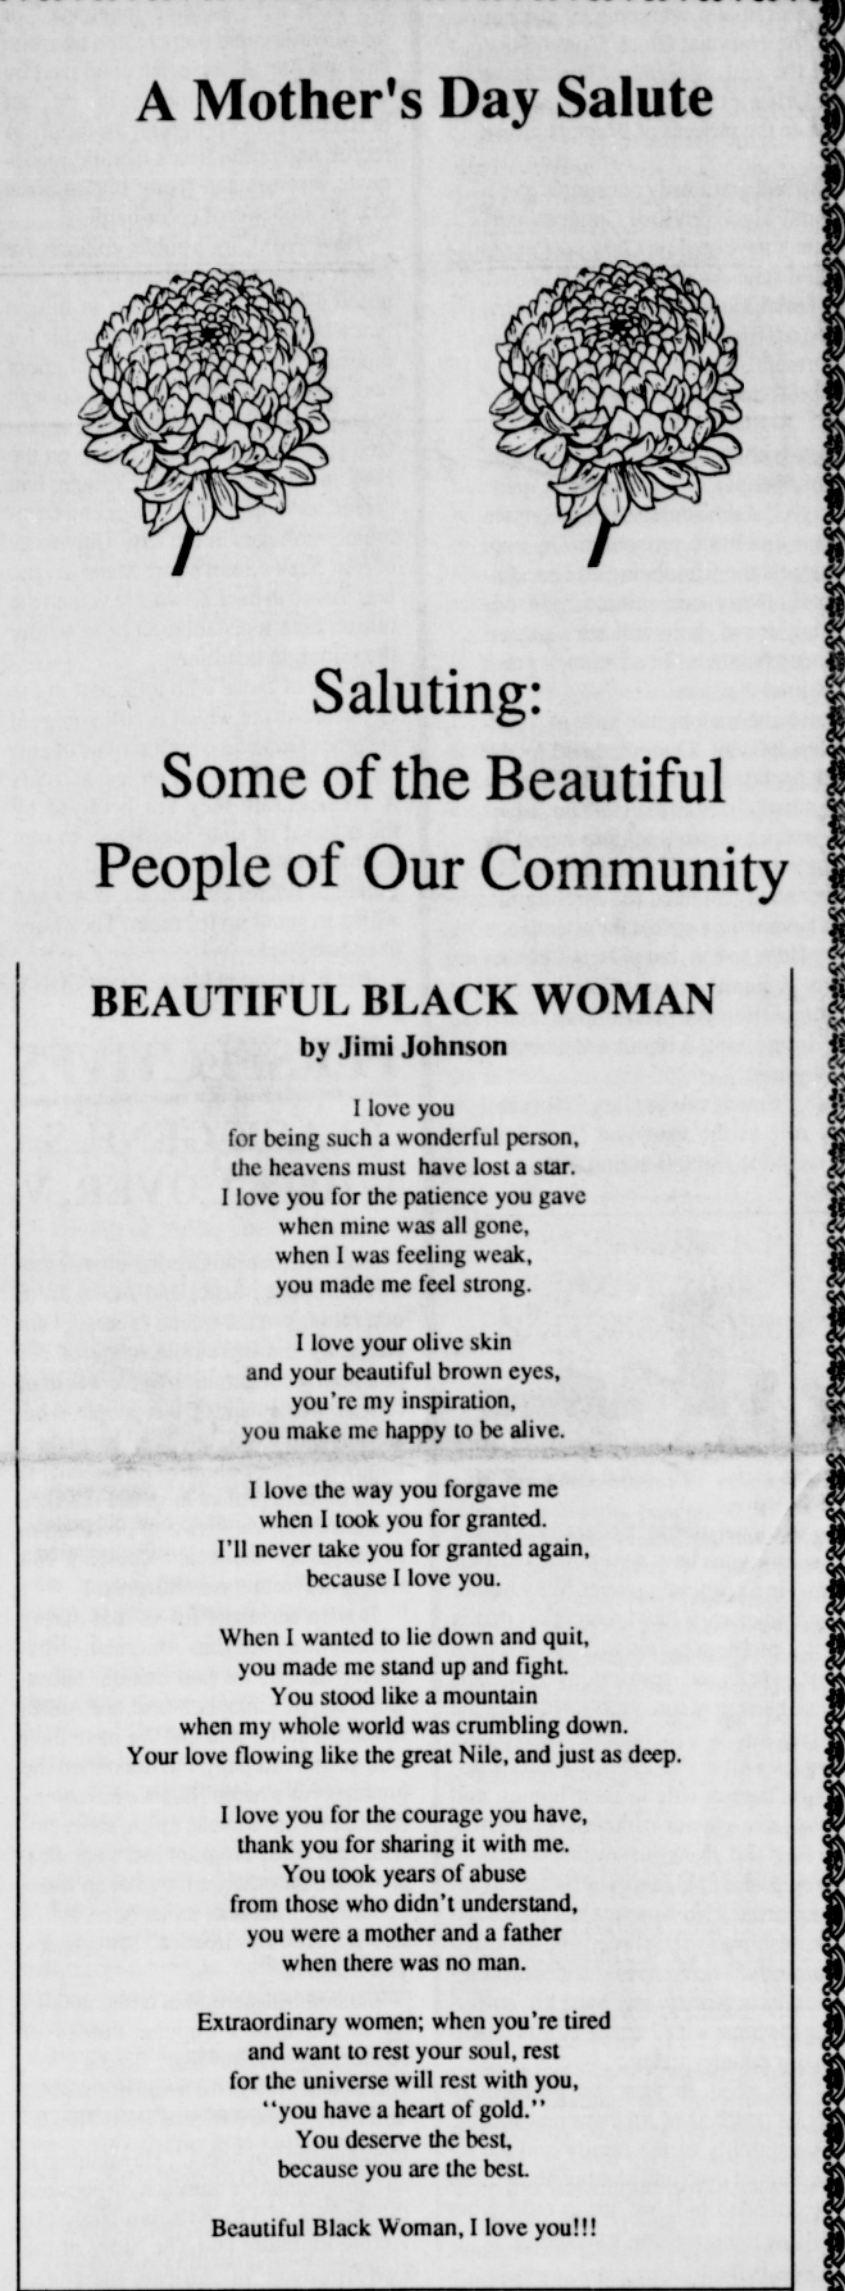 A Mother's Day Salute
Saluting:
Some of the Beautiful
People of Our Community
BEAUTIFUL BLACK WOMAN
by Jimi Johnson
I love you
for being such a wonderful person,
the heavens must have lost a star.
I love you for the patience you gave
when mine was all gone,
when I was feeling weak,
you made me feel strong.
I love your olive skin
and your beautiful brown eyes,
you're my inspiration,
you make me happy to be alive.
I love the way you forgave me
when I took you for granted.
I'll never take you for granted again,
because I love you.
When I wanted to lie down and quit,
you made me stand up and fight.
You stood like a mountain
when my whole world was crumbling down.
Your love flowing like the great Nile, and just as deep.
I love you for the courage you have,
thank you for sharing it with me.
You took years of abuse
from those who didn't understand,
you were a mother and a father
when there was no man.
Extraordinary women; when you're tired
and want to rest your soul, rest
for the universe will rest with you,
"you have a heart of gold."
You deserve the best,
because you are the best.
Beautiful Black Woman, I love you!!!